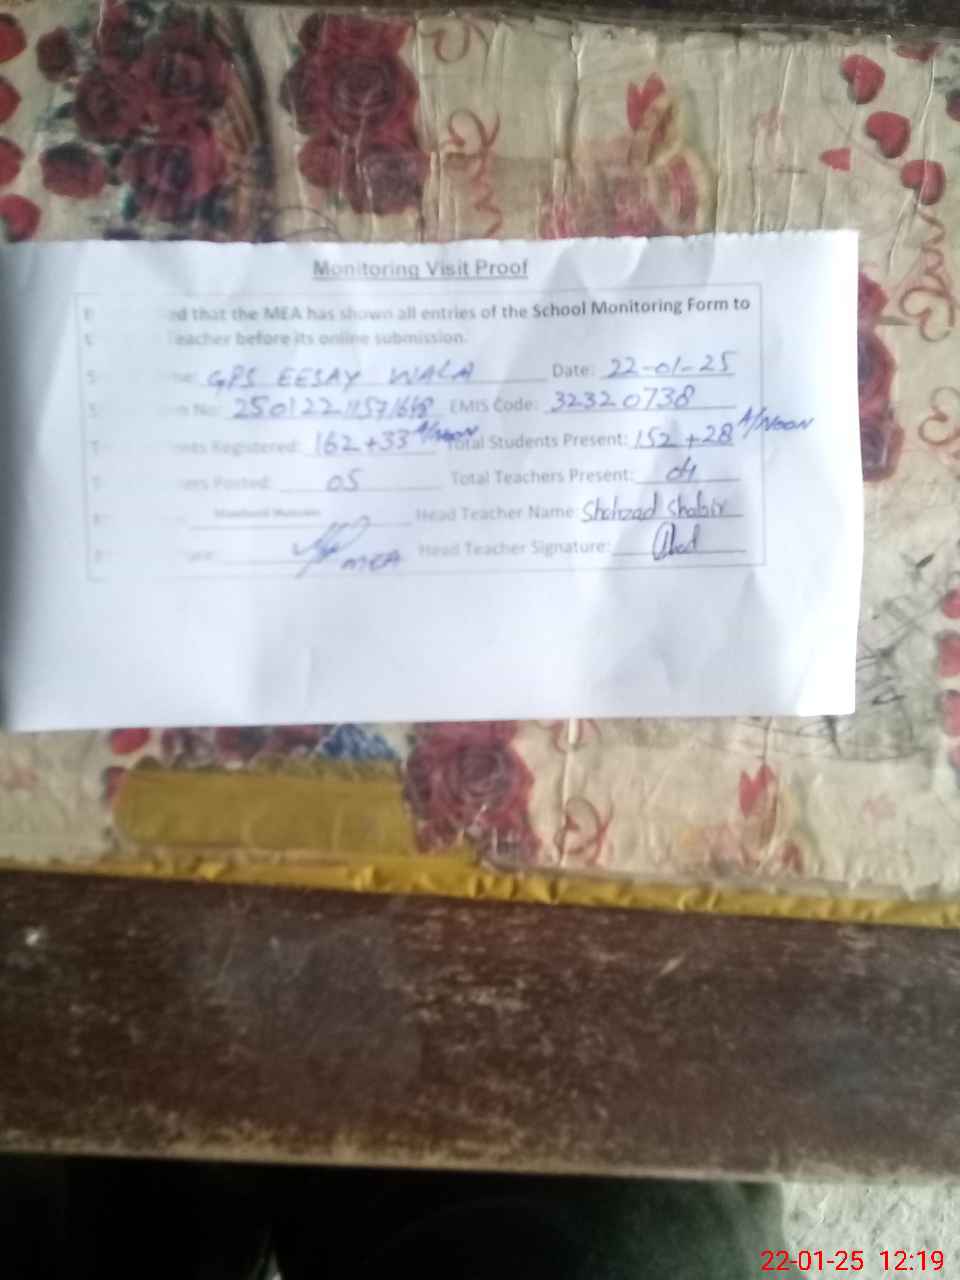 Monitoring Visit Proof
ed that the MEA has shown all entries of the School Monitoring Form to
eacher before its online submission.
GPS EESAY WALA Date: 22-01-25
No: EMIS Code: 32320738
nts Registered: 162+33 A/Noon Total Students Present: 152+28 A/Noon
ers Posted: 05 Total Teachers Present: 04
Head Teacher Name: Shahzad Shabir
MEA Head Teacher Signature:
22-01-25 12:19